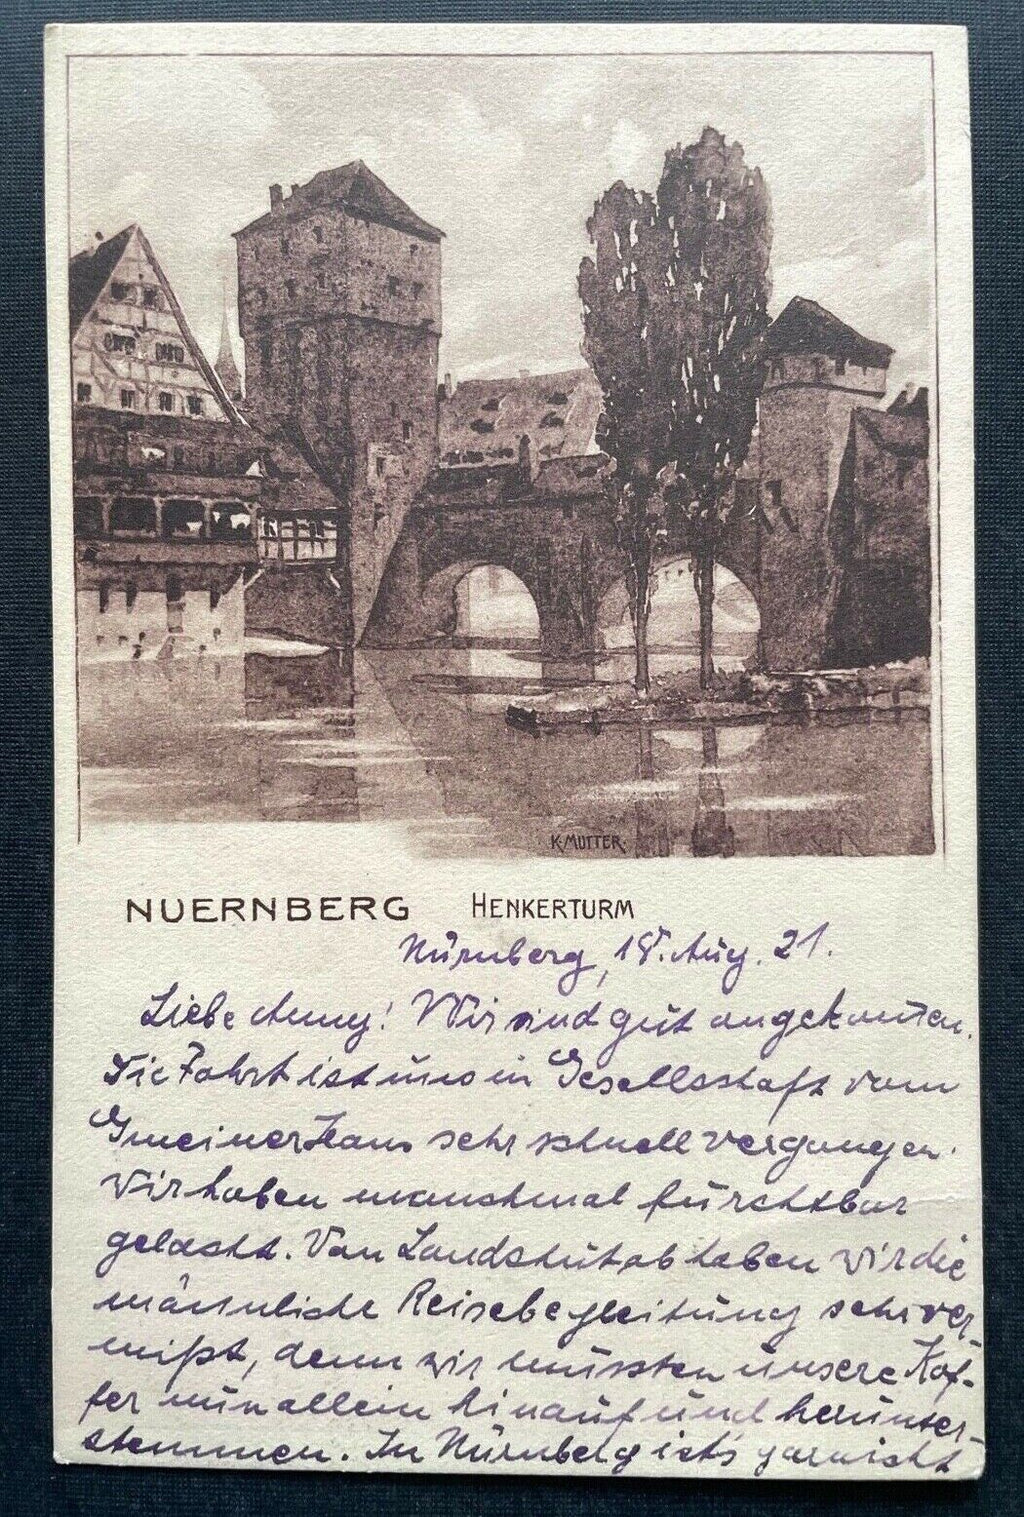 K. MUTTER.
NUERNBERG HENKERTURM
Nürnberg, 18. Aug. 21.
Liebe Anny! Wir sind gut angekommen.
Die Fahrt ist uns in Gesellschaft vom
sehr schnell vergangen.
Wir haben manchmal furchtbar
gelacht. Von Landshut ab haben wir die
männliche Reisebegleitung sehr ver-
mißt, denn wir mussten unsere Kof-
fer nun allein hinauf und herunter-
stemmen. In Nürnberg ist's garnicht